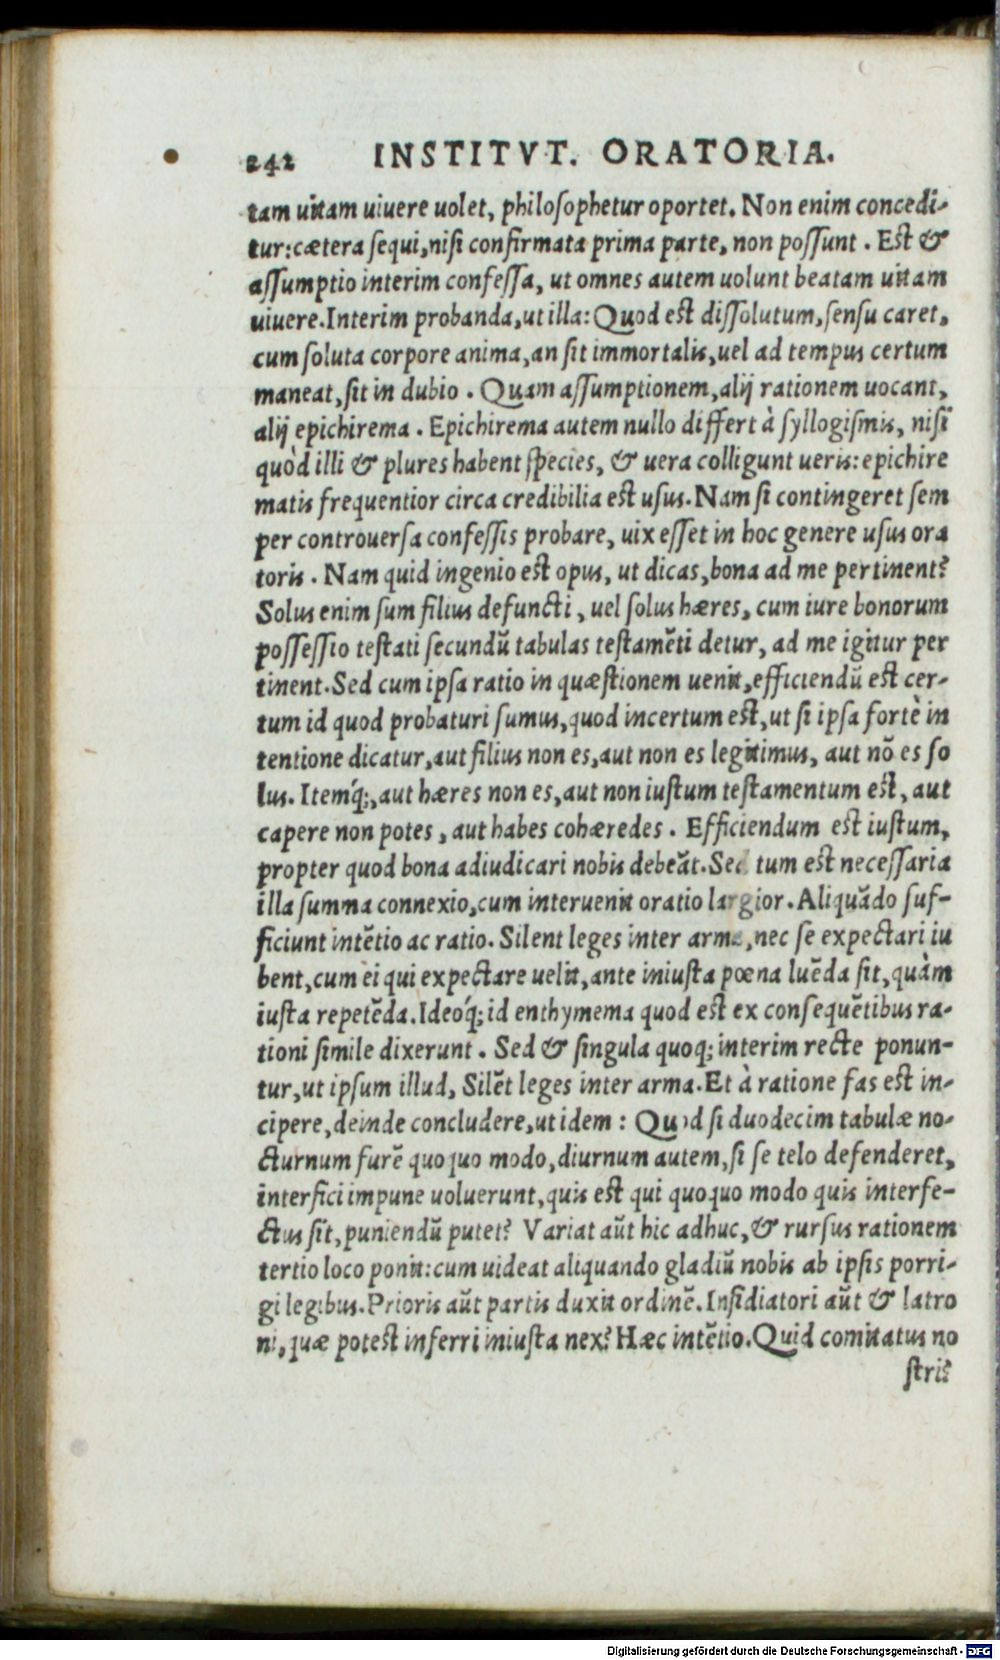 242 INSTITVT. ORATORIA.
tam uitam uiuere uolet, philosophetur oportet. Non enim concedi-
tur: cætera sequi, nisi confirmata prima parte, non possunt. Est &
assumptio interim confessa, ut omnes autem uolunt beatam uitam
uiuere. Interim probanda, ut illa: Quod est dissolutum, sensu caret,
cum soluta corpore anima, an sit immortalis, uel ad tempus certum
maneat, sit in dubio. Quam assumptionem, alij rationem uocant,
alij epichirema. Epichirema autem nullo differt à syllogismis, nisi
quòd illi & plures habent species, & uera colligunt ueris: epichire
matis frequentior circa credibilia est usus. Nam si contingeret sem
per controuersa confessis probare, uix esset in hoc genere usus ora
toris. Nam quid ingenio est opus, ut dicas, bona ad me pertinent?
Solus enim sum filius defuncti, uel solus hæres, cum iure bonorum
possessio testati secundũ tabulas testamẽti detur, ad me igitur per
tinent. Sed cum ipsa ratio in quæstionem uenit, efficiendũ est cer-
tum id quod probaturi sumus, quod incertum est, ut si ipsa fortè in
tentione dicatur, aut filius non es, aut non es legitimus, aut nõ es so
lus. Itemq́;, aut hæres non es, aut non iustum testamentum est, aut
capere non potes, aut habes cohæredes. Efficiendum est iustum,
propter quod bona adiudicari nobis debeãt. Sed tum est necessaria
illa summa connexio, cum interuenit oratio largior. Aliquãdo suf-
ficiunt intẽtio ac ratio. Silent leges inter arma, nec se expectari iu
bent, cum ei qui expectare uelit, ante iniusta pœna luẽda sit, quàm
iusta repetẽda. Ideoq́; id enthymema quod est ex consequẽtibus ra-
tioni simile dixerunt. Sed & singula quoq; interim recte ponun-
tur, ut ipsum illud, Silẽt leges inter arma. Et à ratione fas est in-
cipere, deinde concludere, ut idem: Quod si duodecim tabulæ no-
cturnum furẽ quoquo modo, diurnum autem, si se telo defenderet,
interfici impune uoluerunt, quis est qui quoquo modo quis interfe-
ctus sit, puniendũ putet? Variat aũt hic adhuc, & rursus rationem
tertio loco ponit: cum uideat aliquando gladiũ nobis ab ipsis porri-
gi legibus. Prioris aũt partis duxit ordinẽ. Insidiatori aũt & latro
ni, quæ potest inferri iniusta nex? Hæc intẽtio. Quid comitatus no
stri?
Digitalisierung gefördert durch die Deutsche Forschungsgemeinschaft - DFG